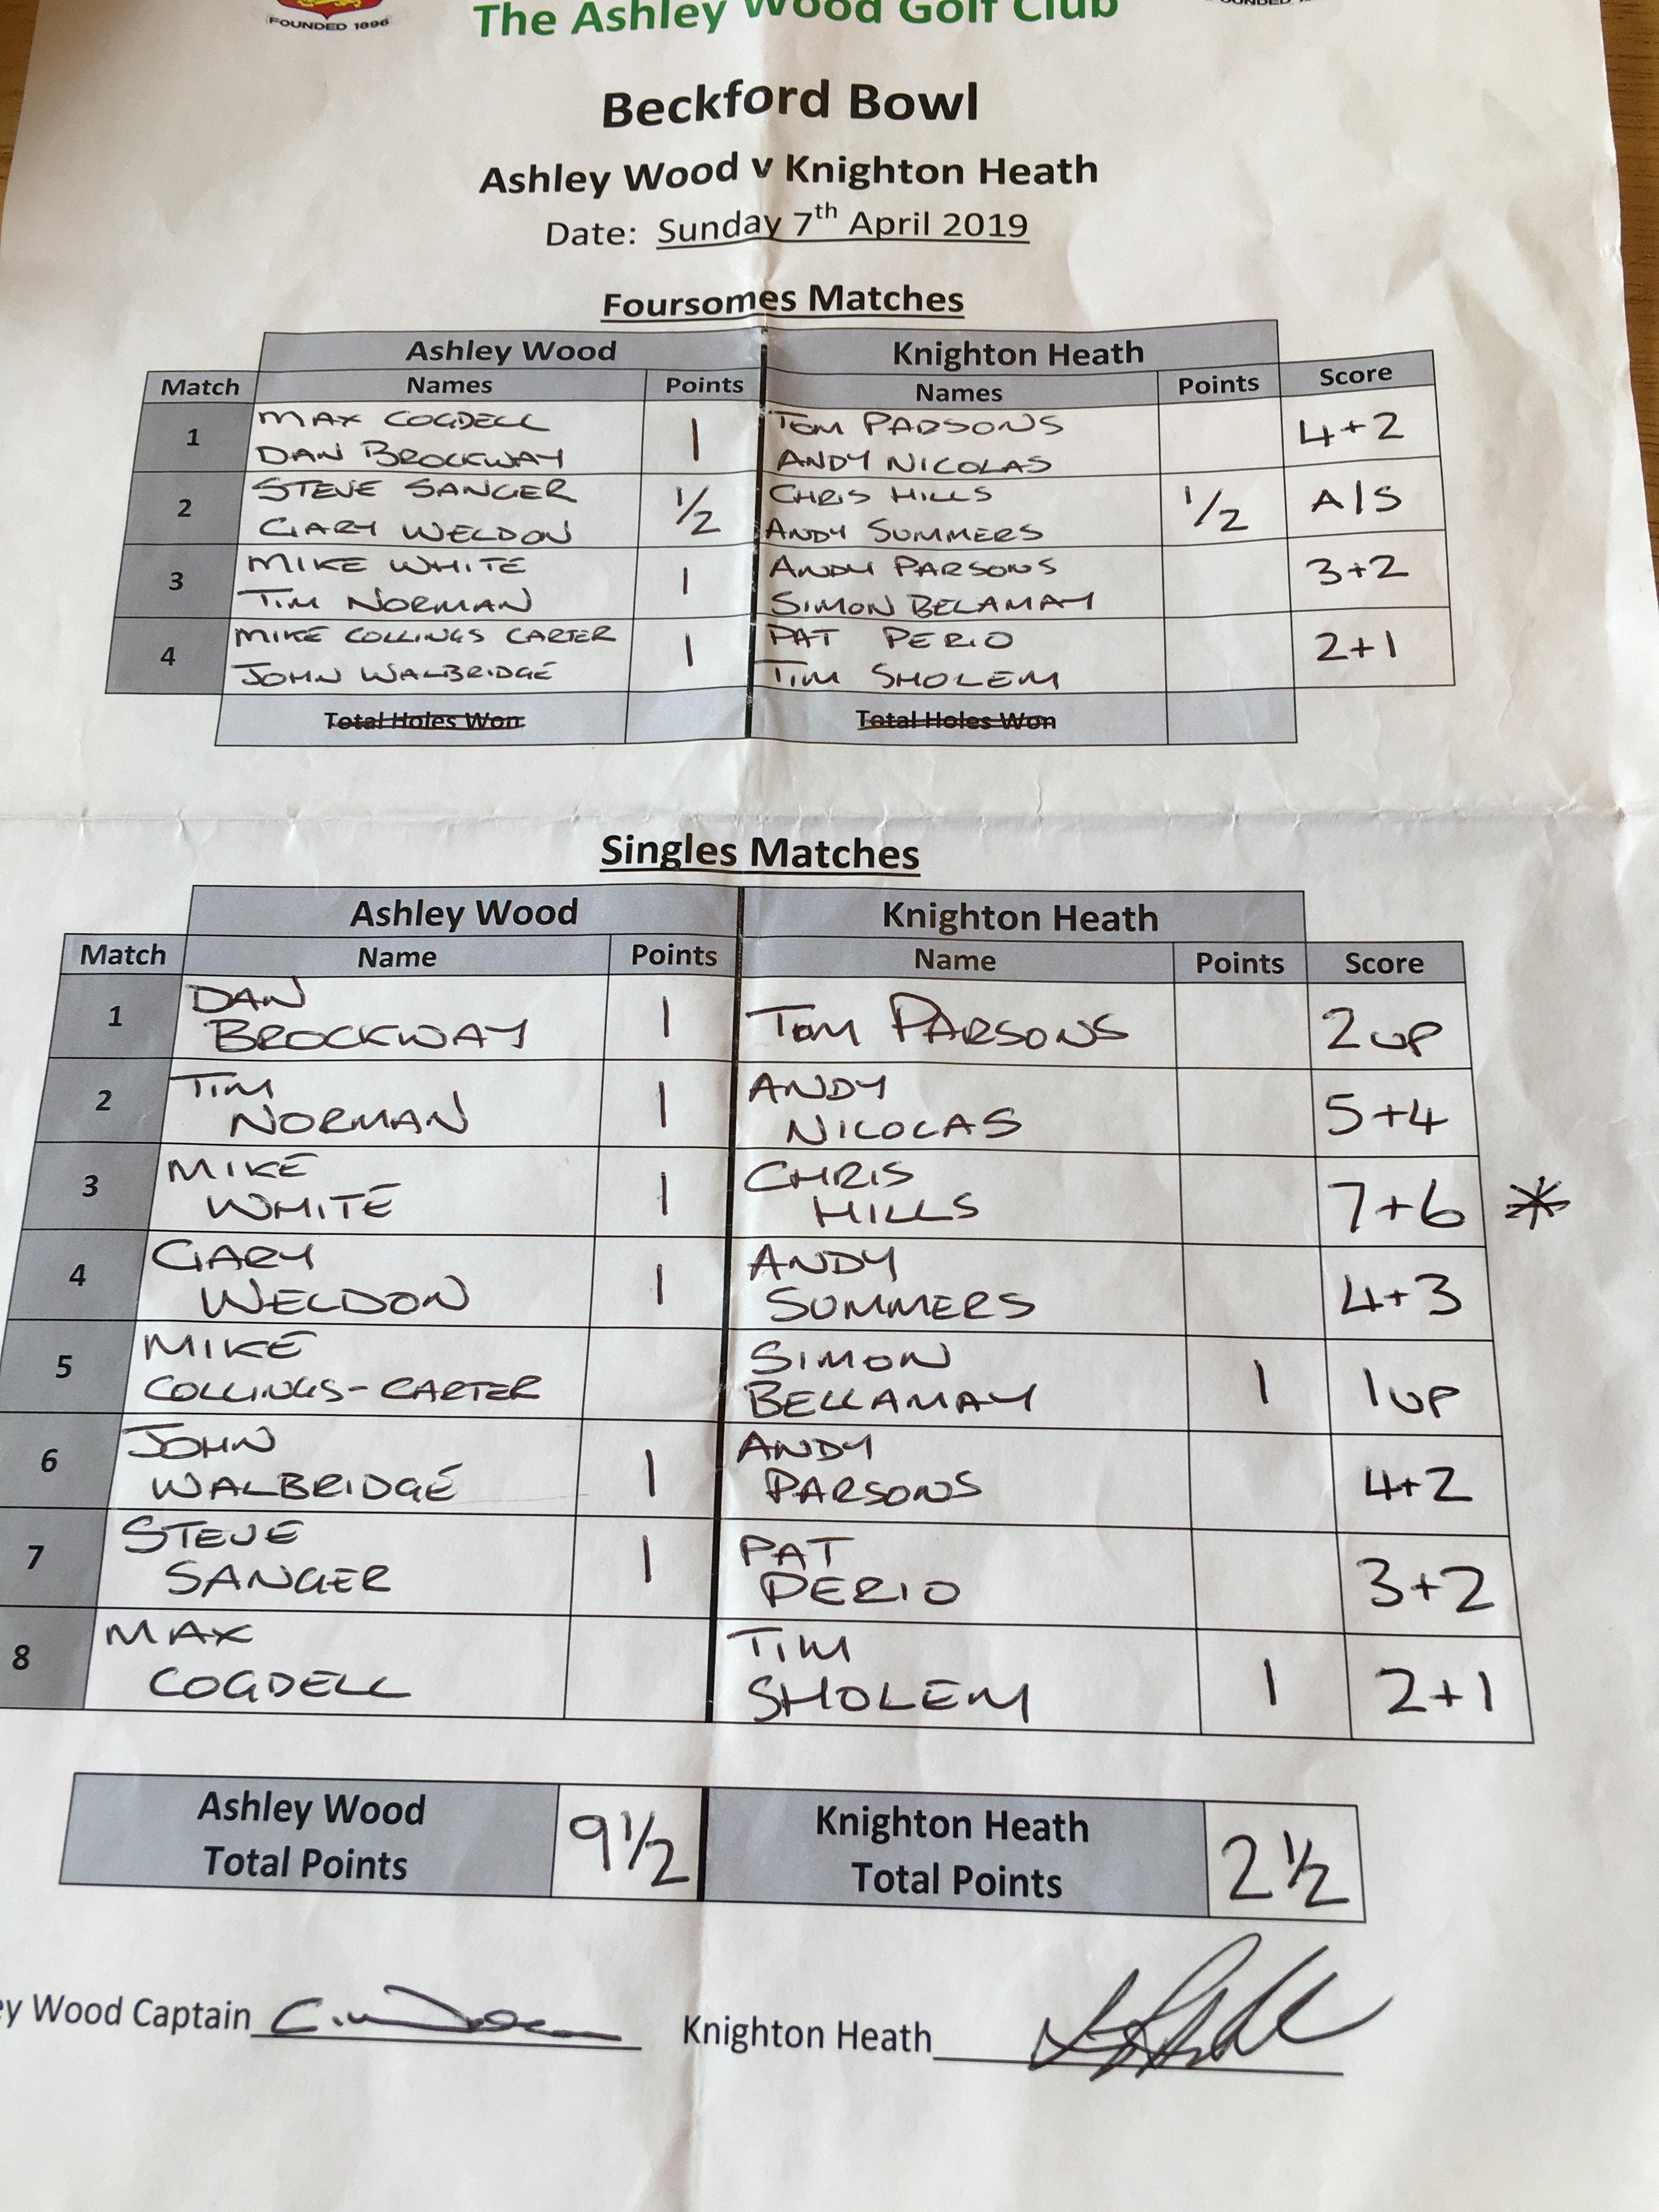 FOUNDED 1896
The Ashley Wood Golf Club
Beckford Bowl
Ashley Wood v Knighton Heath
Date: Sunday 7th April 2019
Foursomes Matches
Ashley Wood Knighton Heath
Match Names Points Names Points Score
1 MAX COGDELL 1 TOM PARSONS 4+2
DAN BROCKWAY ANDY NICOLAS
2 STEVE SANGER 1/2 CHRIS HILLS 1/2 A/S
GARY WELDON ANDY SUMMERS
3 MIKE WHITE 1 ANDY PARSONS 3+2
TIM NORMAN SIMON BELAMAY
4 MIKE COLLINGS CARTER 1 PAT PERIO 2+1
JOHN WALBRIDGE TIM SHOLEM
Total Holes Won Total Holes Won
Singles Matches
Ashley Wood Knighton Heath
Match Name Points Name Points Score
1 DAN BROCKWAY 1 TOM PARSONS 2UP
2 TIM NORMAN 1 ANDY NICOLAS 5+4
3 MIKE WHITE 1 CHRIS HILLS 7+6 *
4 GARY WELDON 1 ANDY SUMMERS 4+3
5 MIKE COLLINGS-CARTER SIMON BELLAMAY 1 1UP
6 JOHN WALBRIDGE 1 ANDY PARSONS 4+2
7 STEVE SANGER 1 PAT PERIO 3+2
8 MAX COGDELL TIM SHOLEM 1 2+1
Ashley Wood Total Points 9 1/2 Knighton Heath Total Points 2 1/2
ey Wood Captain Knighton Heath